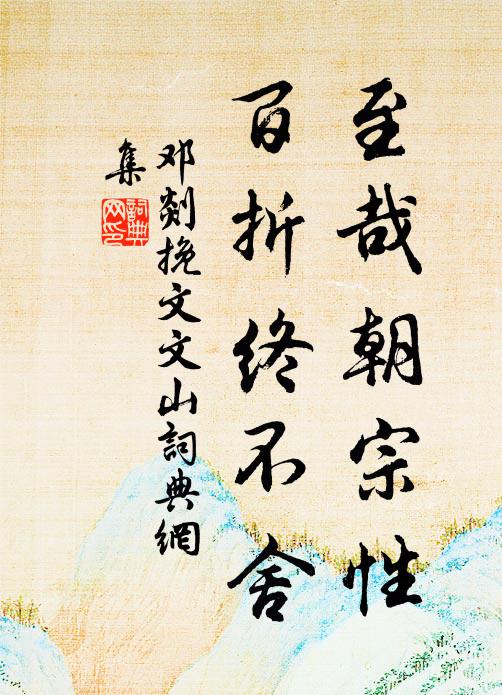 至哉朝宗性
百折终不舍
邓剡挽文文山詞典網
集
詞典
网印